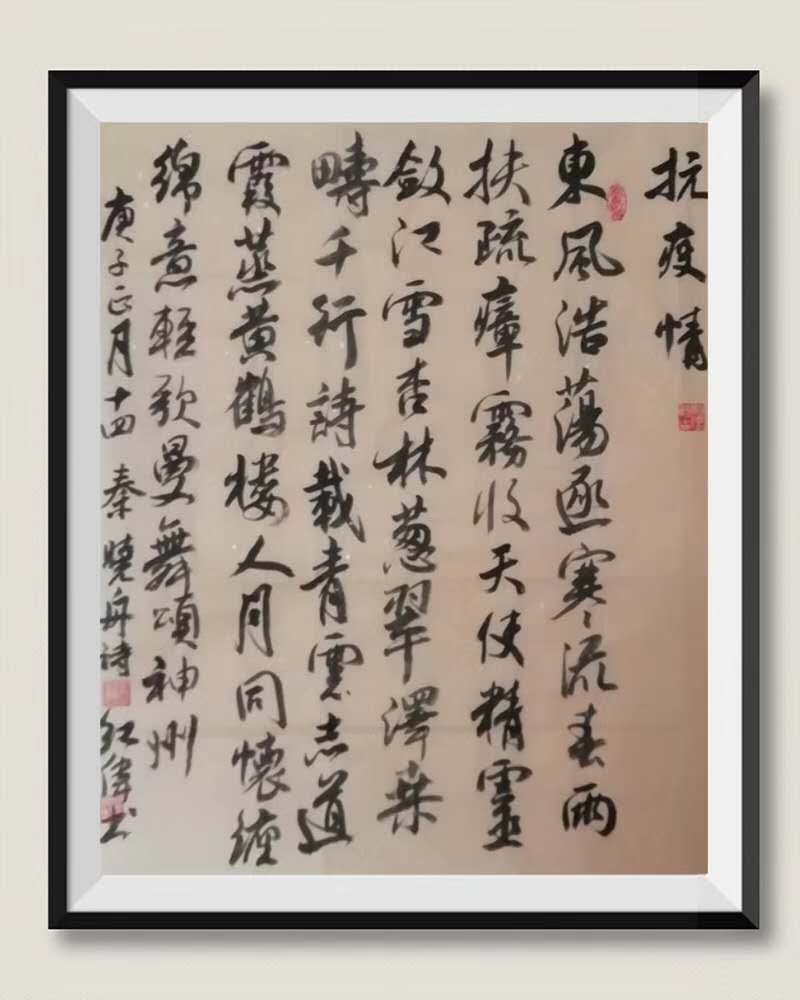 抗疫情
東風浩蕩逐寒流春雨
扶疏瘴霧收天使精靈
斂江雪杏林葱翠澤桑
疇千行詩載青雲志道
霞蒸黄鶴樓人月同懷纏
綿意輕歌曼舞頌神州
庚子正月十四 秦曉舟詩 红偉书